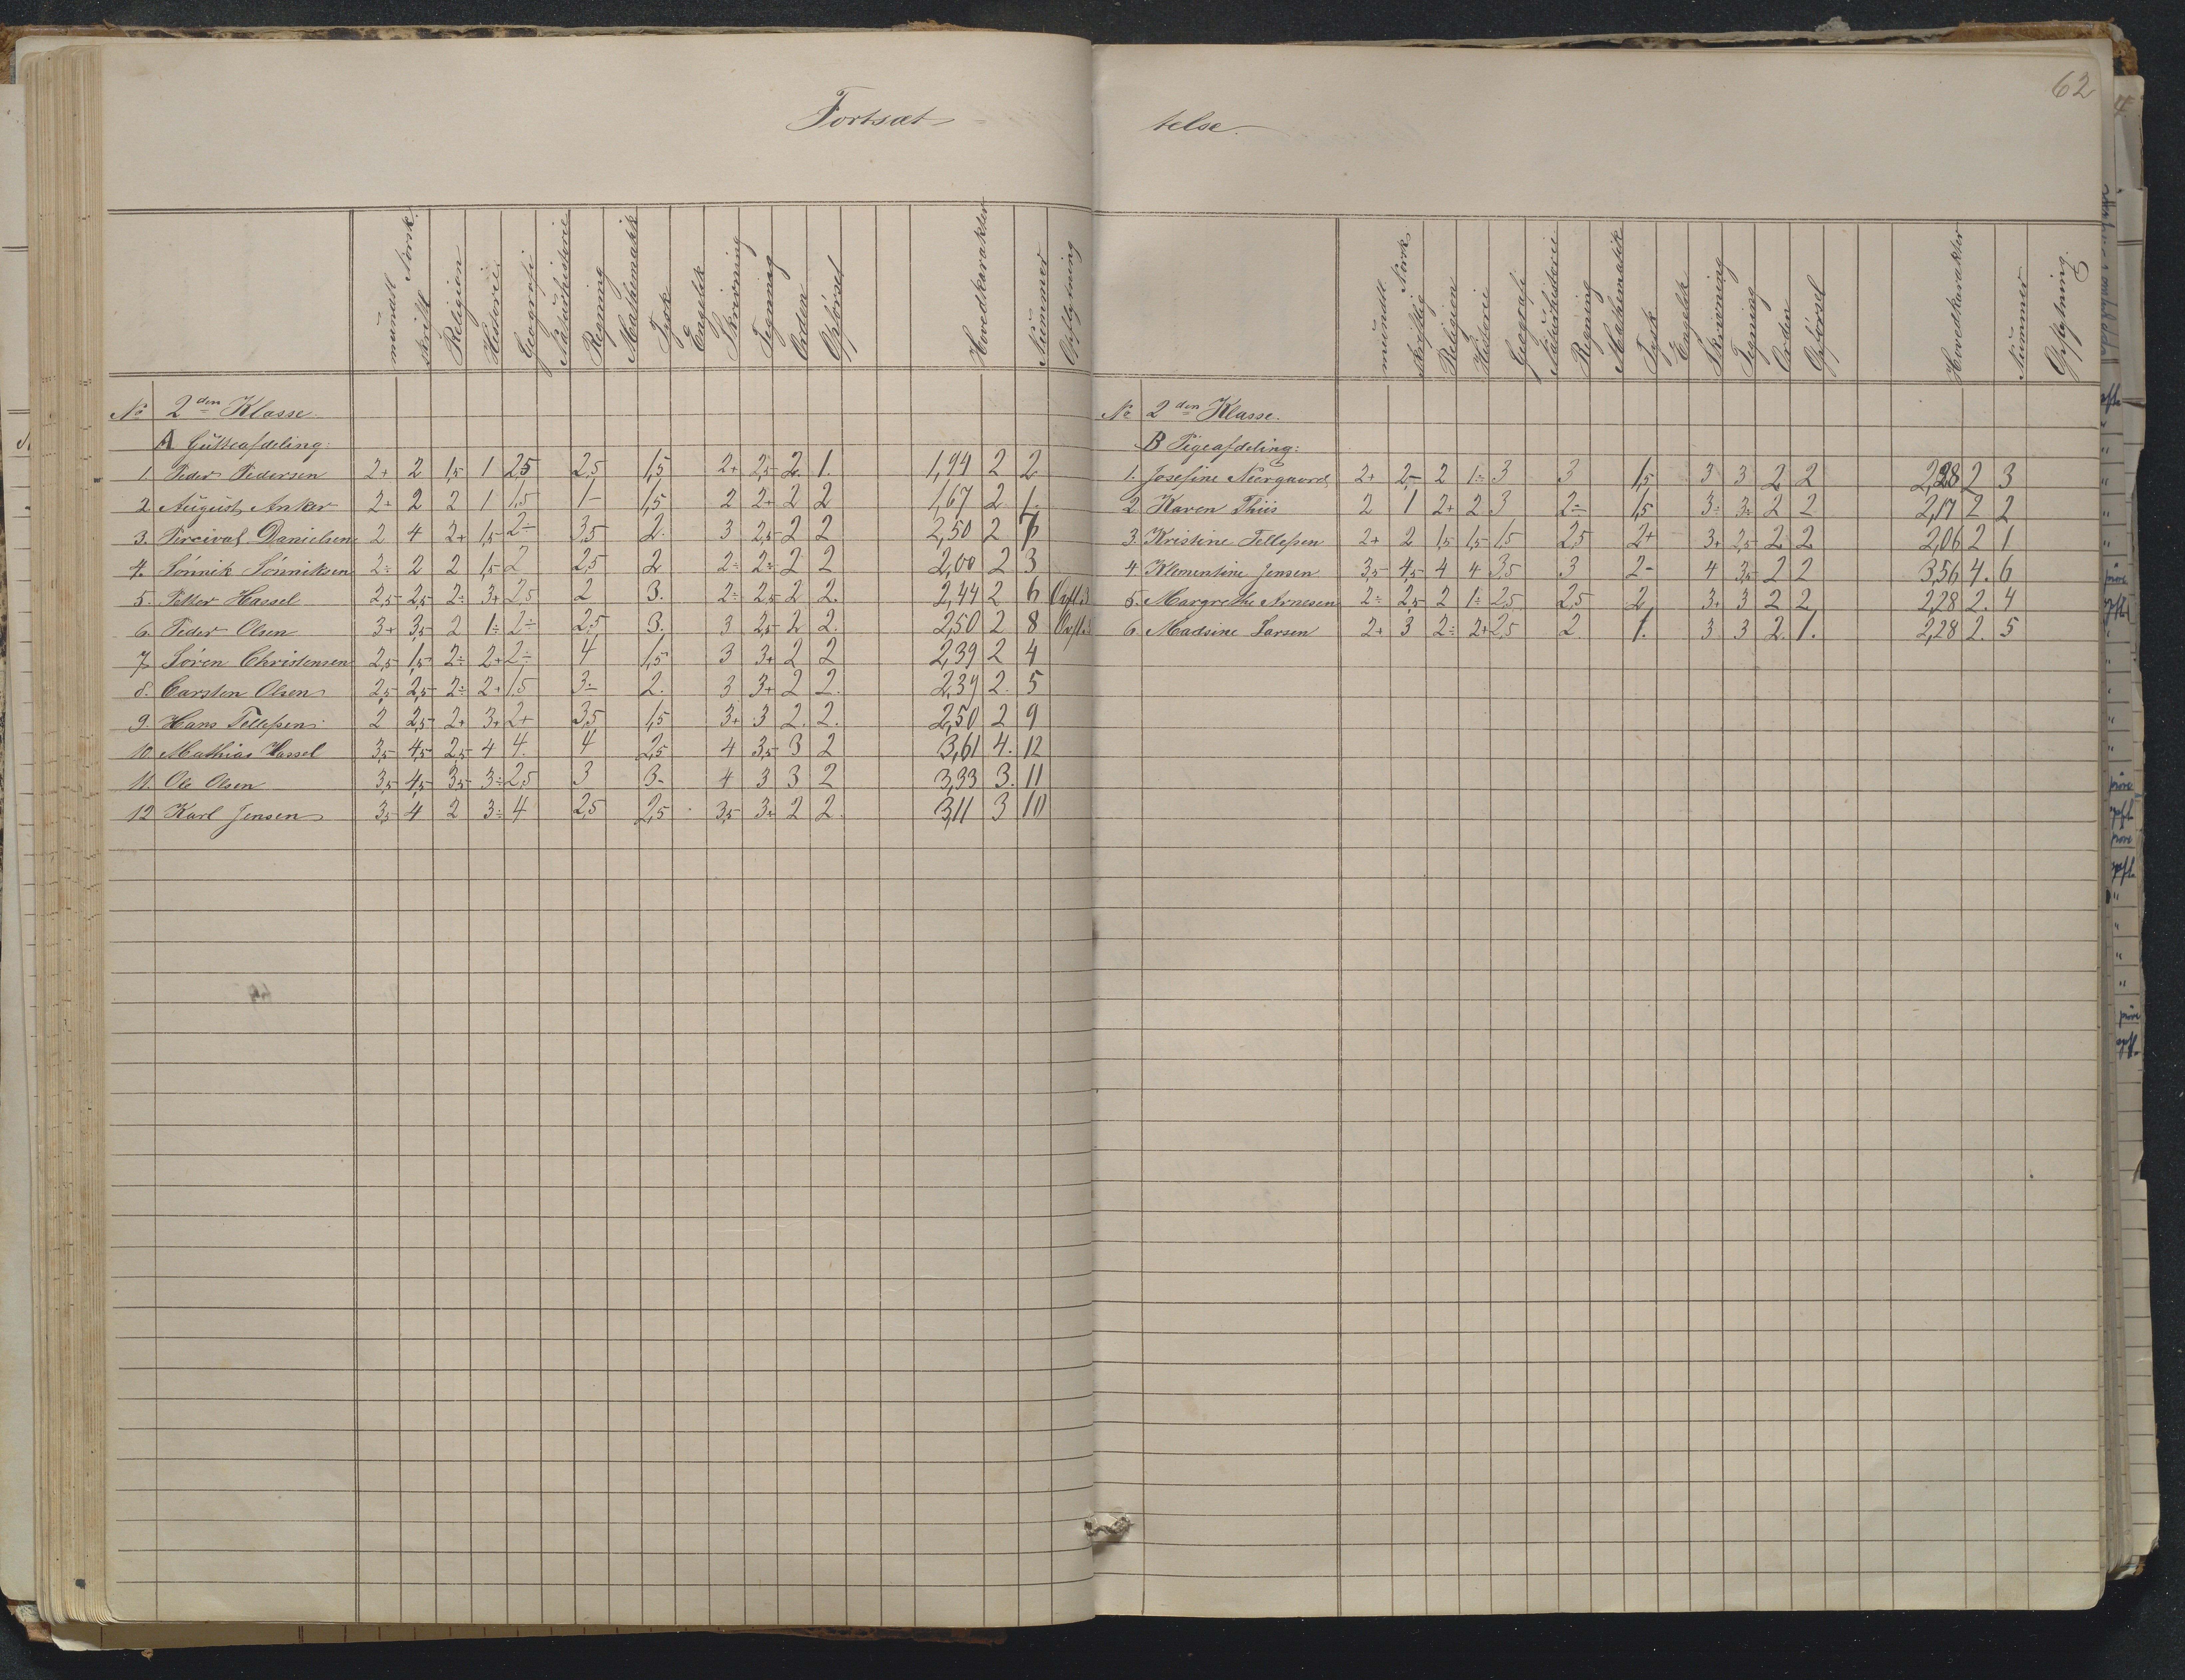 62
Fortsæt-
telse.
mundtl. skriftl. Norsk. Religion Historie. Geografi Naturhistorie Regning Mathematik Tysk Engelsk Skrivning Tegning Orden Opförsel Hovedkarakter Nummer Opflytning
No 2den Klasse.
A Gutteafdeling:
1. Peder Pedersen 2+ 2 1,5 1 2,5 2,5 1,5 2+ 2,5 2 1. 1,94 2 2
2. August Anker 2+ 2 2 1 1,5 1- 1,5 2 2+ 2 2 1,67 2 1.
3. Percival Danielsen 2 4 2+ 1,5 2÷ 3,5 2. 3 2,5 2 2 2,50 2 7
4. Sönnik Sönniksen 2÷ 2 2 1,5 2 2,5 2 2÷ 2÷ 2 2 2,00 2 3
5. Petter Hassel 2,5 2,5 2÷ 3+ 2,5 2 3. 2÷ 2,5 2 2. 2,44 2 6 Opfl. 3
6. Peder Olsen 3+ 3,5 2 1÷ 2÷ 2,5 3. 3 2,5 2 2. 2,50 2 8 Opfl. 3
7. Sören Christensen 2,5 1,5 2÷ 2+ 2÷ 4 1,5 3 3+ 2 2 2,39 2 4
8. Carsten Olsen 2,5 2,5 2÷ 2+ 1,5 3÷ 2. 3 3+ 2 2. 2,39 2. 5
9. Hans Tellefsen. 2 2,5 2+ 3+ 2+ 3,5 1,5 3+ 3 2. 2. 2,50 2 9
10 Mathias Hassel 3,5 4,5 2,5 4 4. 4 2,5 4 3,5 3 2 3,61 4. 12
11. Ole Olsen 3,5 4,5 3,5 3÷ 2,5 3 3- 4 3 3 2 3,33 3. 11
12 Karl Jensen 3,5 4 2 3÷ 4 2,5 2,5 3,5 3÷ 2 2. 3,11 3 10
mundtl. skriftlig Norsk. Religion Historie Geografi Naturhistorie Regning Mathematik Tysk Engelsk Skrivning Tegning Orden Opförsel Hovedkarakter Nummer Opflytning.
No 2den Klasse.
B Pigeafdeling:
1. Josefine Neergaard 2+ 2,5 2 1÷ 3 3 1,5 3 3 2 2 2,28 2 3
2 Karen Thiis 2 1 2+ 2 3 2÷ 1,5 3÷ 3÷ 2 2 2,17 2 2
3. Kristine Tellefsen 2+ 2 1,5 1,5 1,5 2,5 2+ 3+ 2,5 2 2 2,06 2 1
4 Klementine Jensen 3,5 4,5 4 4 3,5 3 2- 4 3,5 2 2 3,56 4. 6
5. Margrethe Arnesen 2÷ 2,5 2 1÷ 2,5 2,5 2 3+ 3 2 2 2,28 2. 4
6. Madsine Larsen 2+ 3 2÷ 2+ 2,5 2. 1. 3 3 2 1. 2,28 2. 5